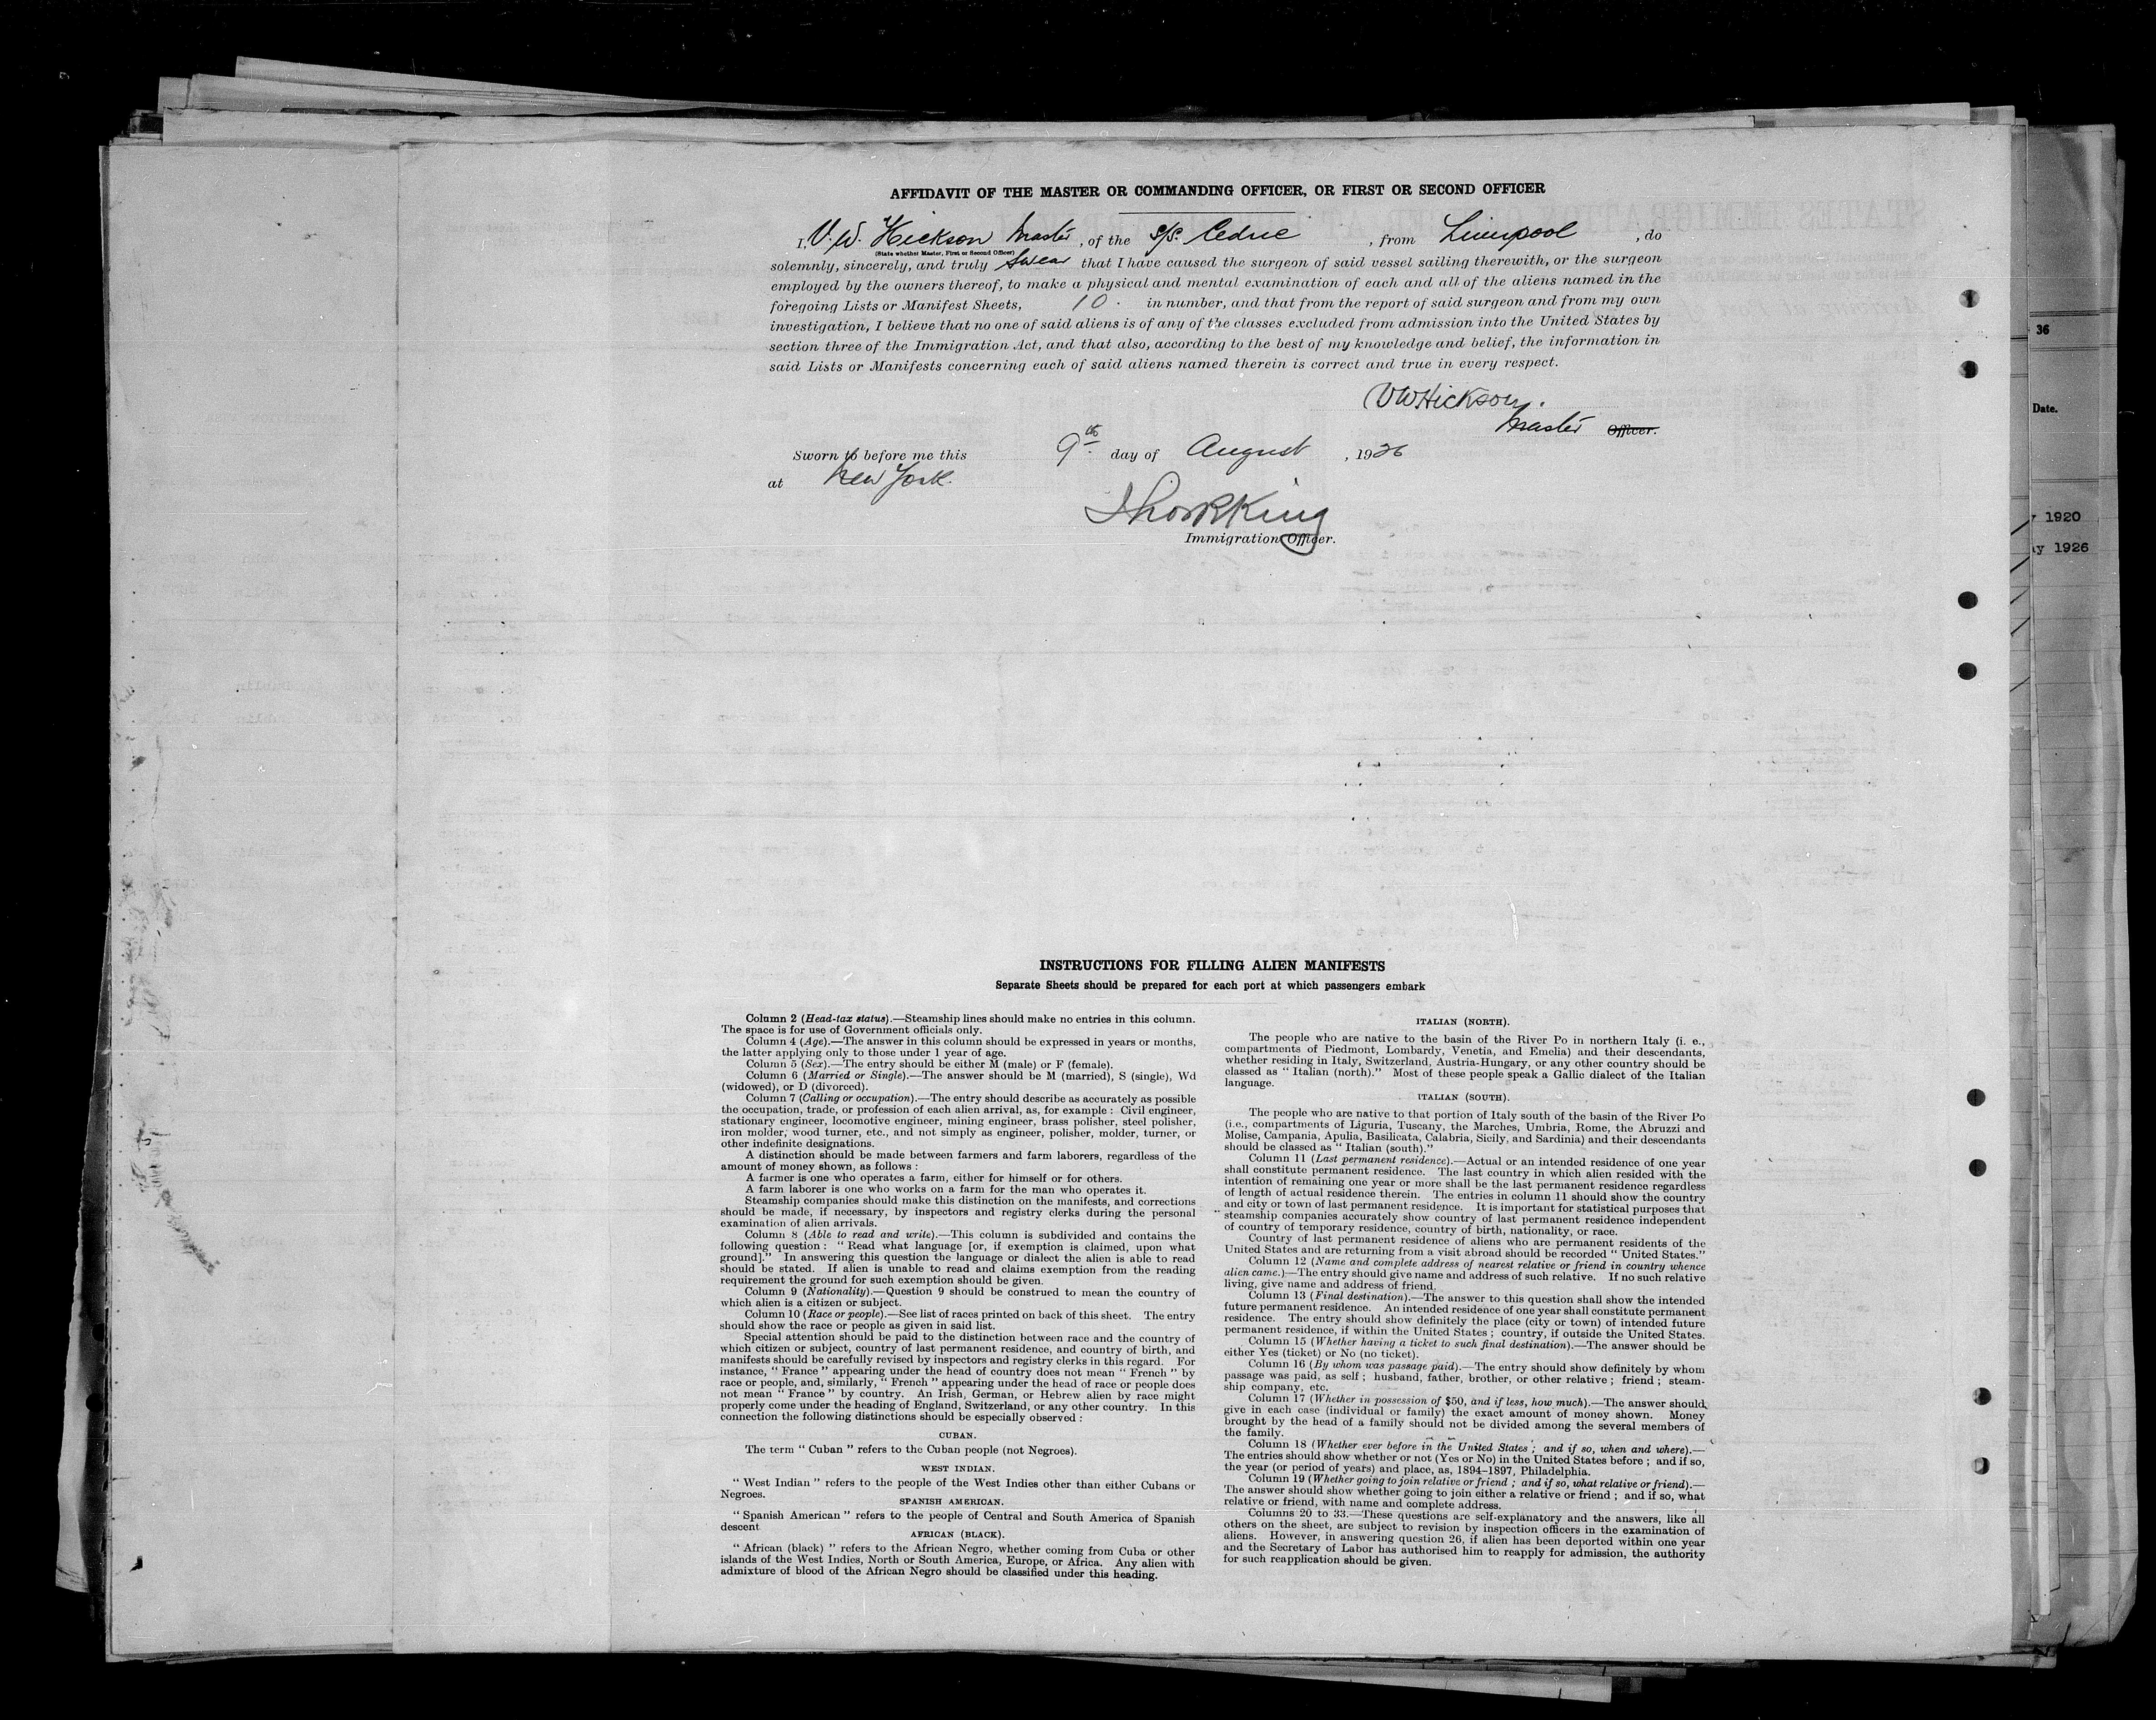 AFFIDAVIT OF THE MASTER OR COMMANDING OFFICER, OR FIRST OR SECOND OFFICER
I, V. W. Hickson Master, of the S/S. Cedric, from Liverpool, do
(State whether Master, First or Second Officer)
solemnly, sincerely, and truly swear that I have caused the surgeon of said vessel sailing therewith, or the surgeon
employed by the owners thereof, to make a physical and mental examination of each and all of the aliens named in the
foregoing Lists or Manifest Sheets, 10. in number, and that from the report of said surgeon and from my own
investigation, I believe that no one of said aliens is of any of the classes excluded from admission into the United States by
section three of the Immigration Act, and that also, according to the best of my knowledge and belief, the information in
said Lists or Manifests concerning each of said aliens named therein is correct and true in every respect.
VW Hickson.
Master Officer.
Sworn to before me this 9th day of August, 1926
at New York.
King
Immigration Officer.
36
Date.
1920
1926
INSTRUCTIONS FOR FILLING ALIEN MANIFESTS
Separate Sheets should be prepared for each port at which passengers embark
Column 2 (Head-tax status).—Steamship lines should make no entries in this column.
The space is for use of Government officials only.
Column 4 (Age).—The answer in this column should be expressed in years or months,
the latter applying only to those under 1 year of age.
Column 5 (Sex).—The entry should be either M (male) or F (female).
Column 6 (Married or Single).—The answer should be M (married), S (single), Wd
(widowed), or D (divorced).
Column 7 (Calling or occupation).—The entry should describe as accurately as possible
the occupation, trade, or profession of each alien arrival, as, for example : Civil engineer,
stationary engineer, locomotive engineer, mining engineer, brass polisher, steel polisher,
iron molder, wood turner, etc., and not simply as engineer, polisher, molder, turner, or
other indefinite designations.
A distinction should be made between farmers and farm laborers, regardless of the
amount of money shown, as follows :
A farmer is one who operates a farm, either for himself or for others.
A farm laborer is one who works on a farm for the man who operates it.
Steamship companies should make this distinction on the manifests, and corrections
should be made, if necessary, by inspectors and registry clerks during the personal
examination of alien arrivals.
Column 8 (Able to read and write).—This column is subdivided and contains the
following question : " Read what language [or, if exemption is claimed, upon what
ground]." In answering this question the language or dialect the alien is able to read
should be stated. If alien is unable to read and claims exemption from the reading
requirement the ground for such exemption should be given.
Column 9 (Nationality).—Question 9 should be construed to mean the country of
which alien is a citizen or subject.
Column 10 (Race or people).—See list of races printed on back of this sheet. The entry
should show the race or people as given in said list.
Special attention should be paid to the distinction between race and the country of
which citizen or subject, country of last permanent residence, and country of birth, and
manifests should be carefully revised by inspectors and registry clerks in this regard. For
instance, " France " appearing under the head of country does not mean " French " by
race or people, and, similarly, " French " appearing under the head of race or people does
not mean " France " by country. An Irish, German, or Hebrew alien by race might
properly come under the heading of England, Switzerland, or any other country. In this
connection the following distinctions should be especially observed :
CUBAN.
The term " Cuban " refers to the Cuban people (not Negroes).
WEST INDIAN.
" West Indian " refers to the people of the West Indies other than either Cubans or
Negroes.
SPANISH AMERICAN.
" Spanish American " refers to the people of Central and South America of Spanish
descent
AFRICAN (BLACK).
" African (black) " refers to the African Negro, whether coming from Cuba or other
islands of the West Indies, North or South America, Europe, or Africa. Any alien with
admixture of blood of the African Negro should be classified under this heading.
ITALIAN (NORTH).
The people who are native to the basin of the River Po in northern Italy (i. e.,
compartments of Piedmont, Lombardy, Venetia, and Emelia) and their descendants,
whether residing in Italy, Switzerland, Austria-Hungary, or any other country should be
classed as " Italian (north)." Most of these people speak a Gallic dialect of the Italian
language.
ITALIAN (SOUTH).
The people who are native to that portion of Italy south of the basin of the River Po
(i.e., compartments of Liguria, Tuscany, the Marches, Umbria, Rome, the Abruzzi and
Molise, Campania, Apulia, Basilicata, Calabria, Sicily, and Sardinia) and their descendants
should be classed as " Italian (south)."
Column 11 (Last permanent residence).—Actual or an intended residence of one year
shall constitute permanent residence. The last country in which alien resided with the
intention of remaining one year or more shall be the last permanent residence regardless
of length of actual residence therein. The entries in column 11 should show the country
and city or town of last permanent residence. It is important for statistical purposes that
steamship companies accurately show country of last permanent residence independent
of country of temporary residence, country of birth, nationality, or race.
Country of last permanent residence of aliens who are permanent residents of the
United States and are returning from a visit abroad should be recorded " United States."
Column 12 (Name and complete address of nearest relative or friend in country whence
alien came.)—The entry should give name and address of such relative. If no such relative
living, give name and address of friend.
Column 13 (Final destination).—The answer to this question shall show the intended
future permanent residence. An intended residence of one year shall constitute permanent
residence. The entry should show definitely the place (city or town) of intended future
permanent residence, if within the United States ; country, if outside the United States.
Column 15 (Whether having a ticket to such final destination).—The answer should be
either Yes (ticket) or No (no ticket).
Column 16 (By whom was passage paid).—The entry should show definitely by whom
passage was paid, as self ; husband, father, brother, or other relative ; friend ; steam-
ship company, etc.
Column 17 (Whether in possession of $50, and if less, how much).—The answer should
give in each case (individual or family) the exact amount of money shown. Money
brought by the head of a family should not be divided among the several members of
the family.
Column 18 (Whether ever before in the United States ; and if so, when and where).—
The entries should show whether or not (Yes or No) in the United States before ; and if so,
the year (or period of years) and place, as, 1894–1897, Philadelphia.
Column 19 (Whether going to join relative or friend ; and if so, what relative or friend).—
The answer should show whether going to join either a relative or friend ; and if so, what
relative or friend, with name and complete address.
Columns 20 to 33.—These questions are self-explanatory and the answers, like all
others on the sheet, are subject to revision by inspection officers in the examination of
aliens. However, in answering question 26, if alien has been deported within one year
and the Secretary of Labor has authorised him to reapply for admission, the authority
for such reapplication should be given.